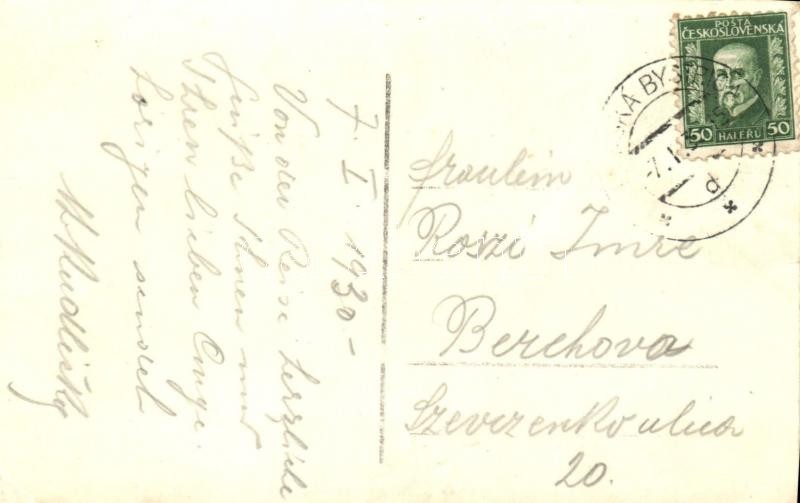 7. I. 1930 -
Von der Reise herzliche
Grüße Ihnen und
Ihren lieben
sendet
POŠTA
ČESKOSLOVENSKÁ
50 HALÉŘŮ 50
KÁ BYST
-7. I.
d
Fraulein
Roszi Imre
Berehova
Szevczenko ulica
20.